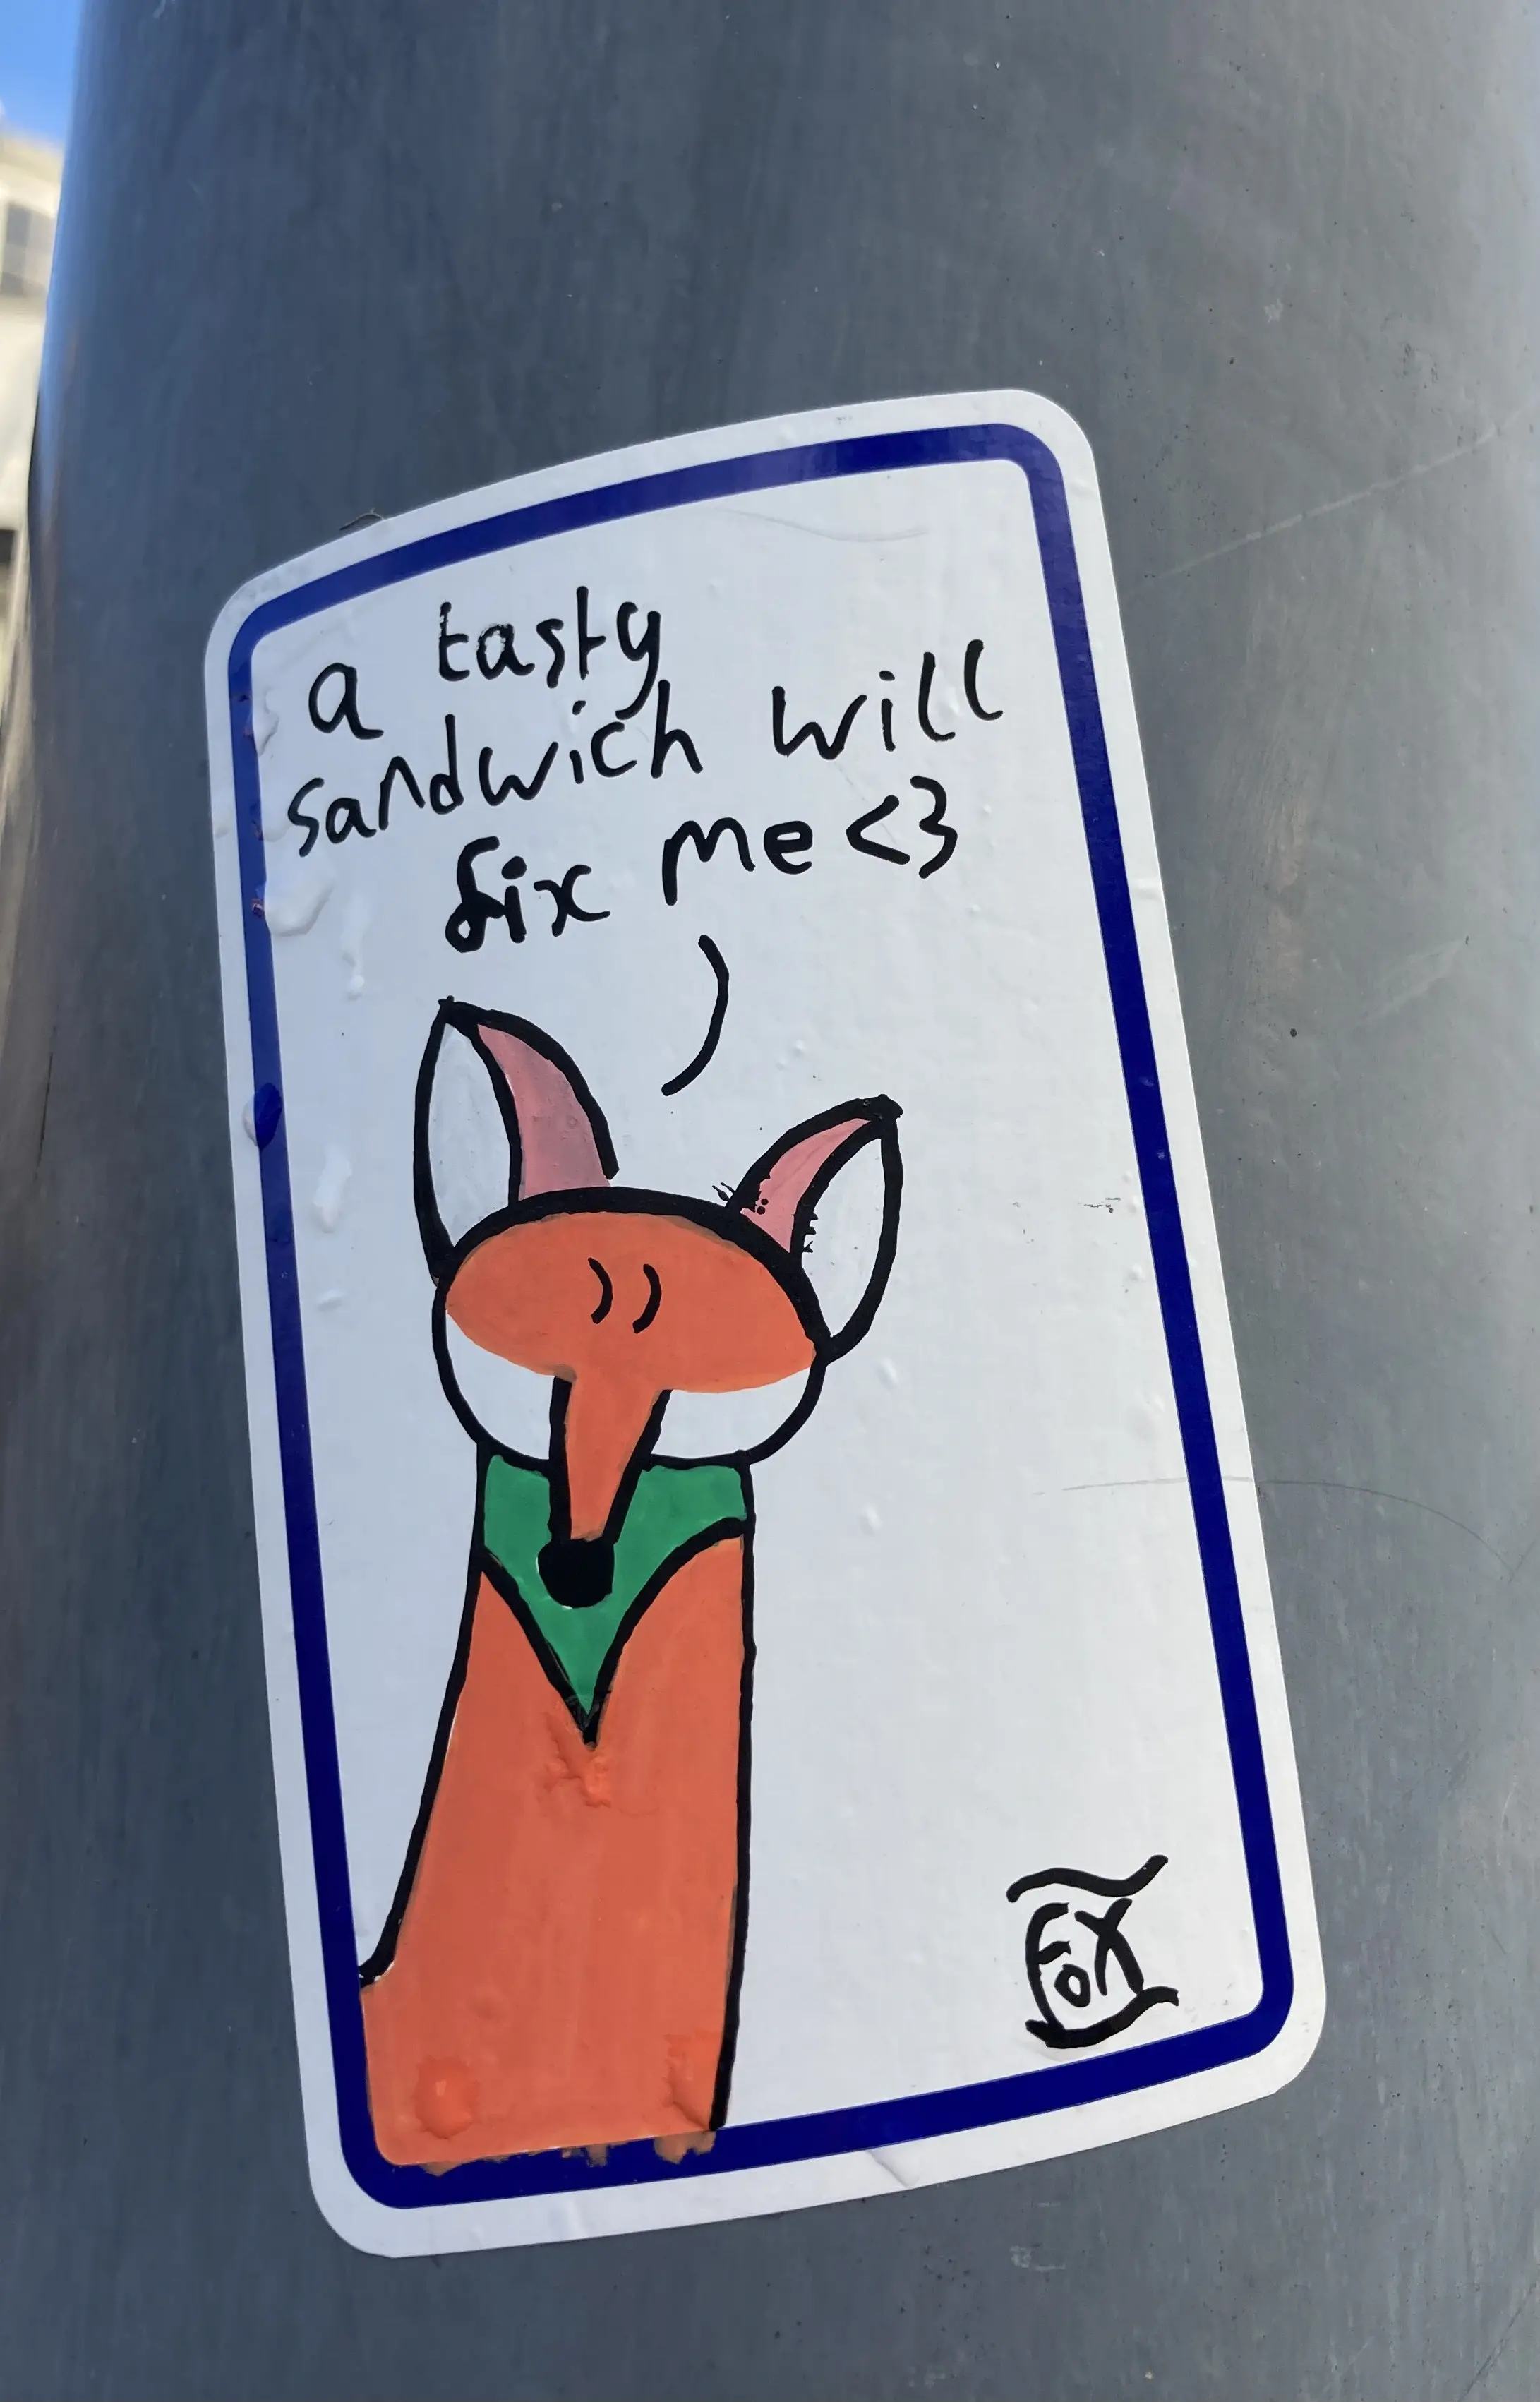 a tasty
sandwich will
fix me <3
FOX